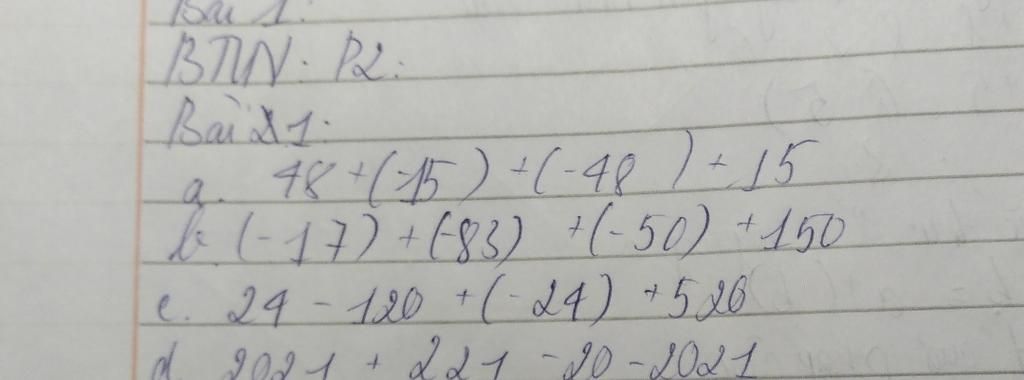 Bài 1:
BTVN: P2:
Bài 1:
a. 48 + (-15) + (-48) + 15
b. (-17) + (-83) + (-50) + 150
c. 24 - 120 + (-24) + 520
d. 2021 + 221 - 20 - 2021